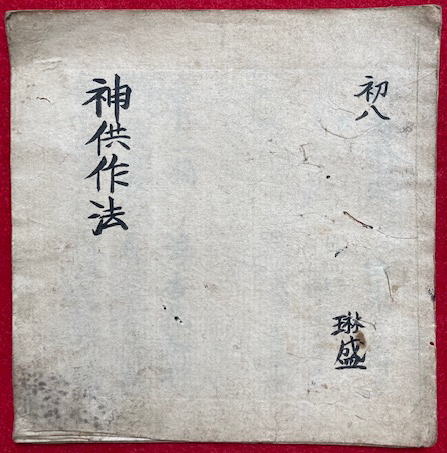 初八
琳盛
神供作法